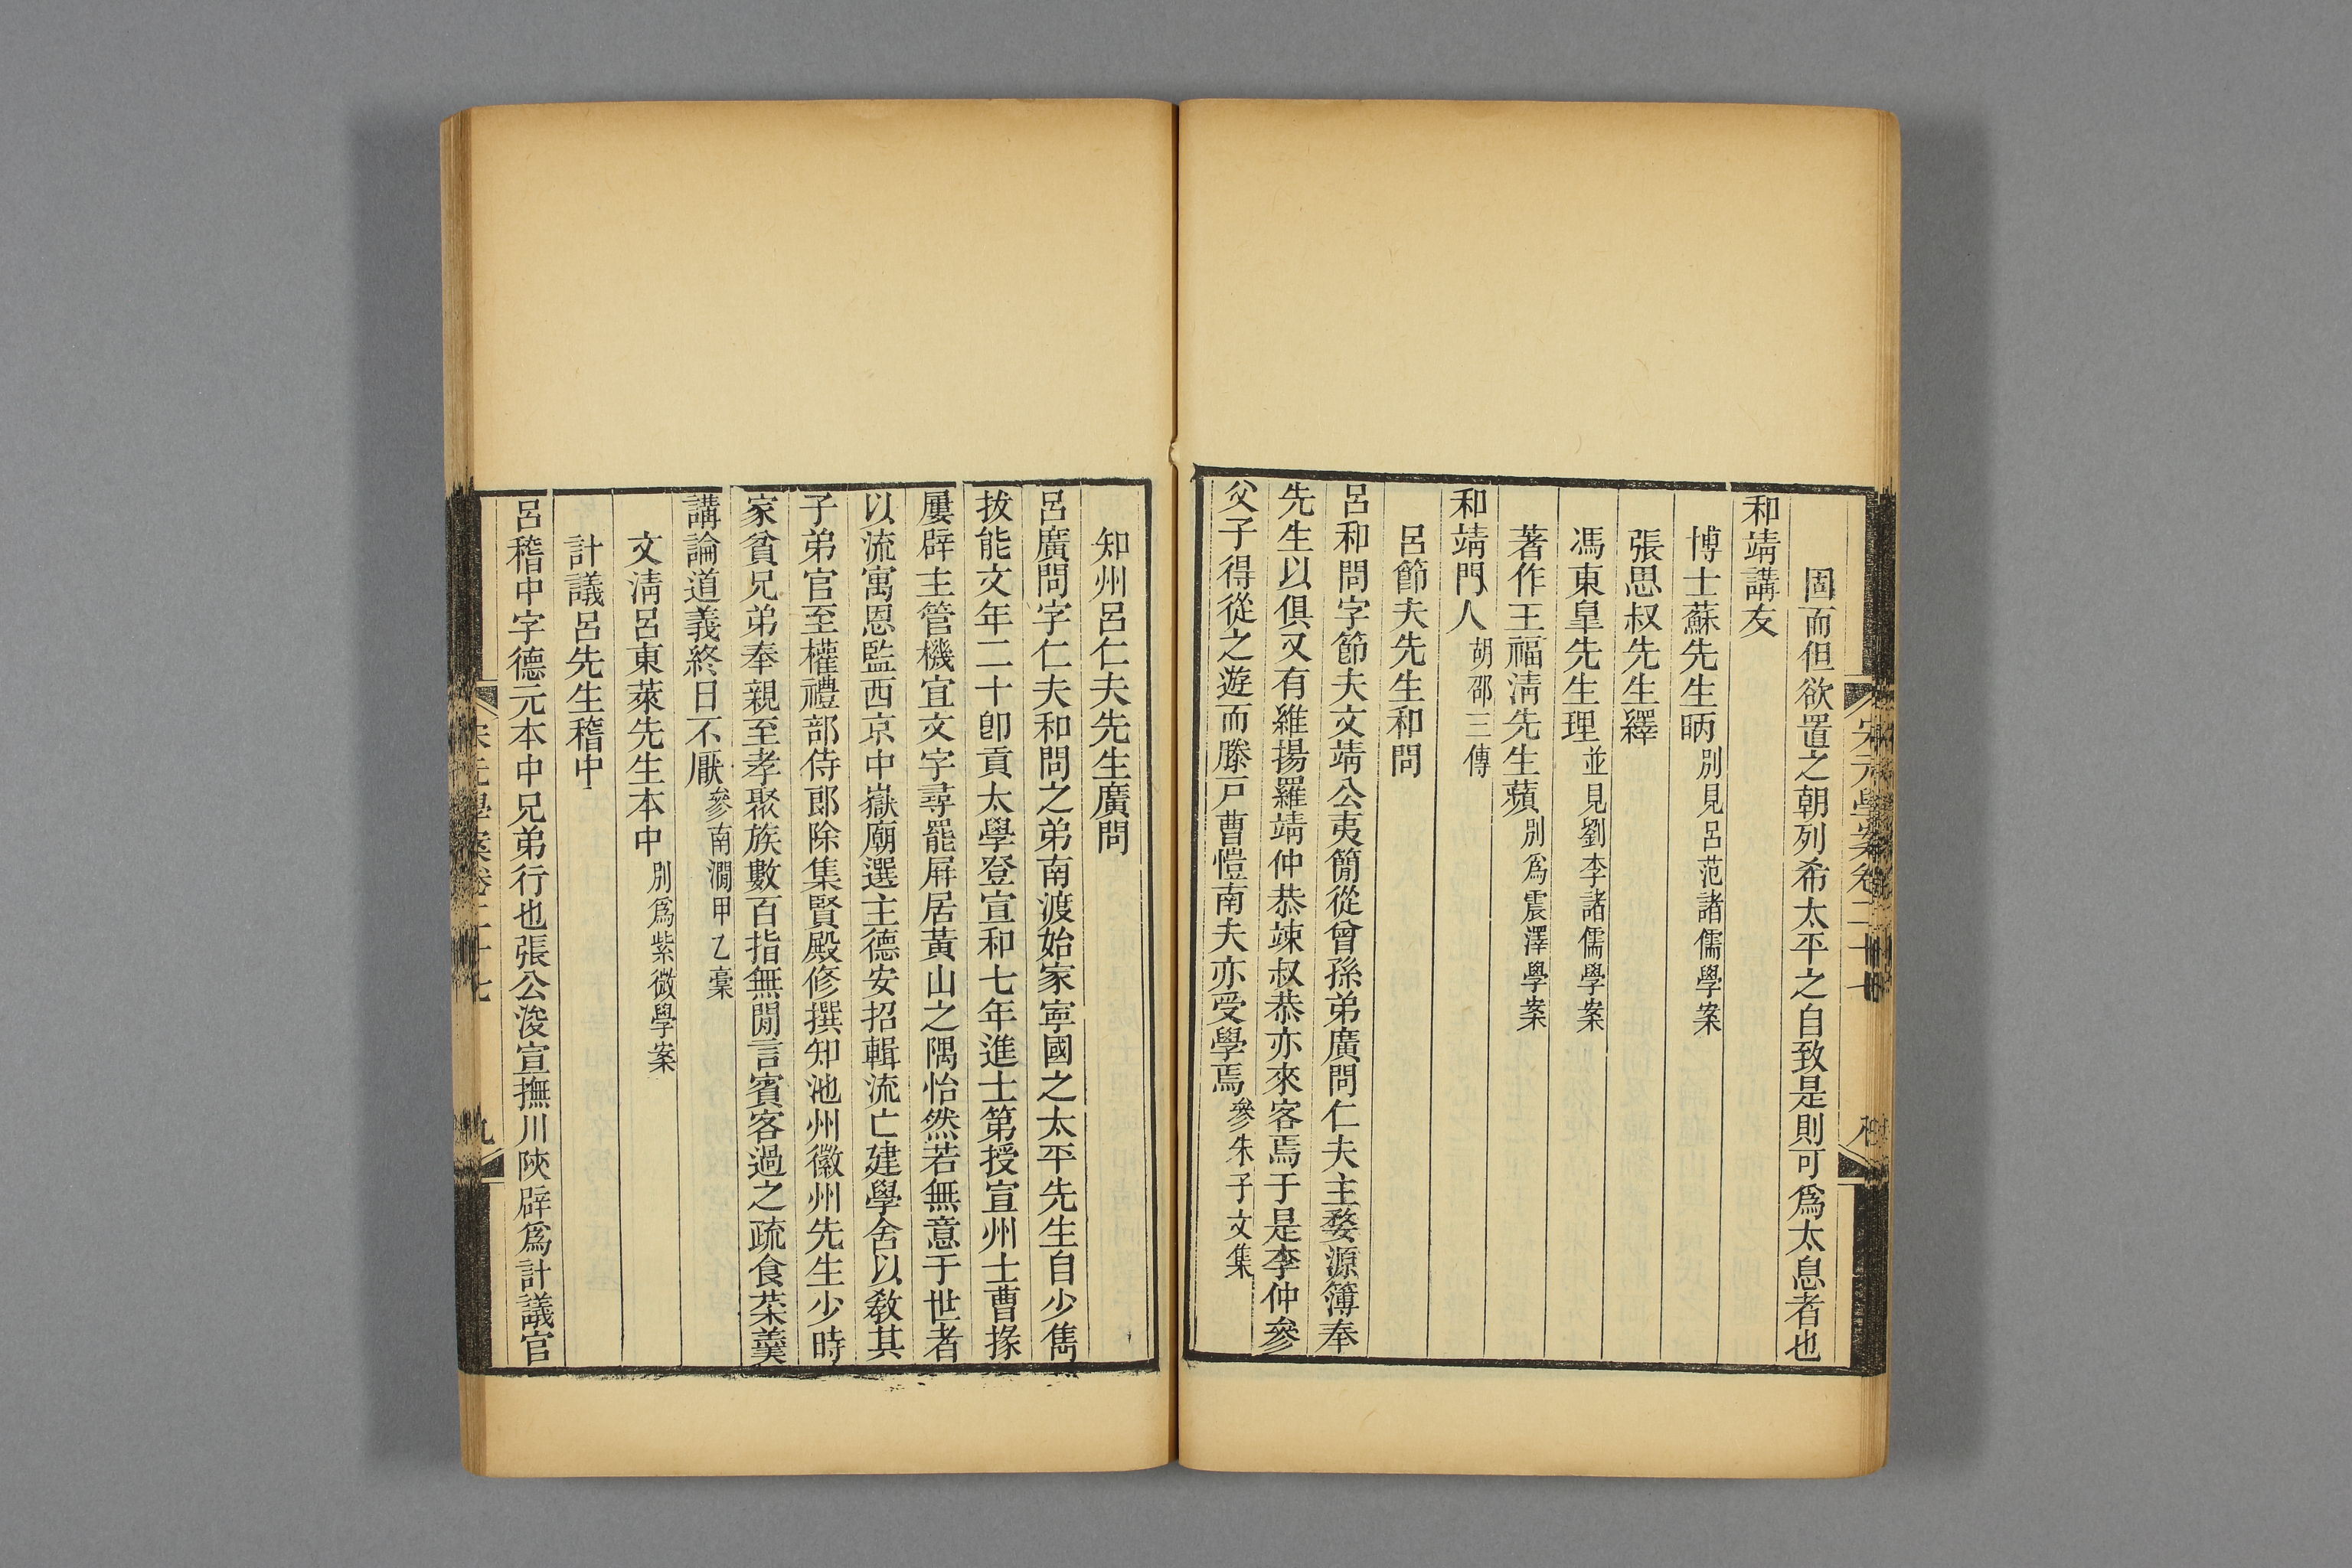 固而但欲置之朝列希太平之自致是則可爲太息者也
和靖講友
博士蘇先生昞別見呂范諸儒學案
張思叔先生繹
馮東皇先生理並見劉李諸儒學案
著作王福淸先生蘋別爲震澤學案
和靖門人胡邵三傳
呂節夫先生和問
呂和問字節夫文靖公夷簡從曾孫弟廣問仁夫主婺源簿奉
先生以俱又有維揚羅靖仲恭竦叔恭亦來客焉于是李仲參
父子得從之遊而滕戸曹愷南夫亦受學焉參朱子文集
知州呂仁夫先生廣問
呂廣問字仁夫和問之弟南渡始家寧國之太平先生自少雋
拔能文年二十卽貢太學登宣和七年進士第授宣州士曹掾
屢辟主管機宜文字尋罷屛居黃山之隅怡然若無意于世者
以流寓恩監西京中嶽廟選主德安招輯流亡建學舍以敎其
子弟官至權禮部侍郎除集賢殿修撰知池州徽州先生少時
家貧兄弟奉親至孝聚族數百指無閒言賓客過之疏食菜羹
講論道義終日不厭參南澗甲乙稾
文淸呂東萊先生本中別爲紫微學案
計議呂先生稽中
呂稽中字德元本中兄弟行也張公浚宣撫川陝辟爲計議官
宋元學案卷二十七
九